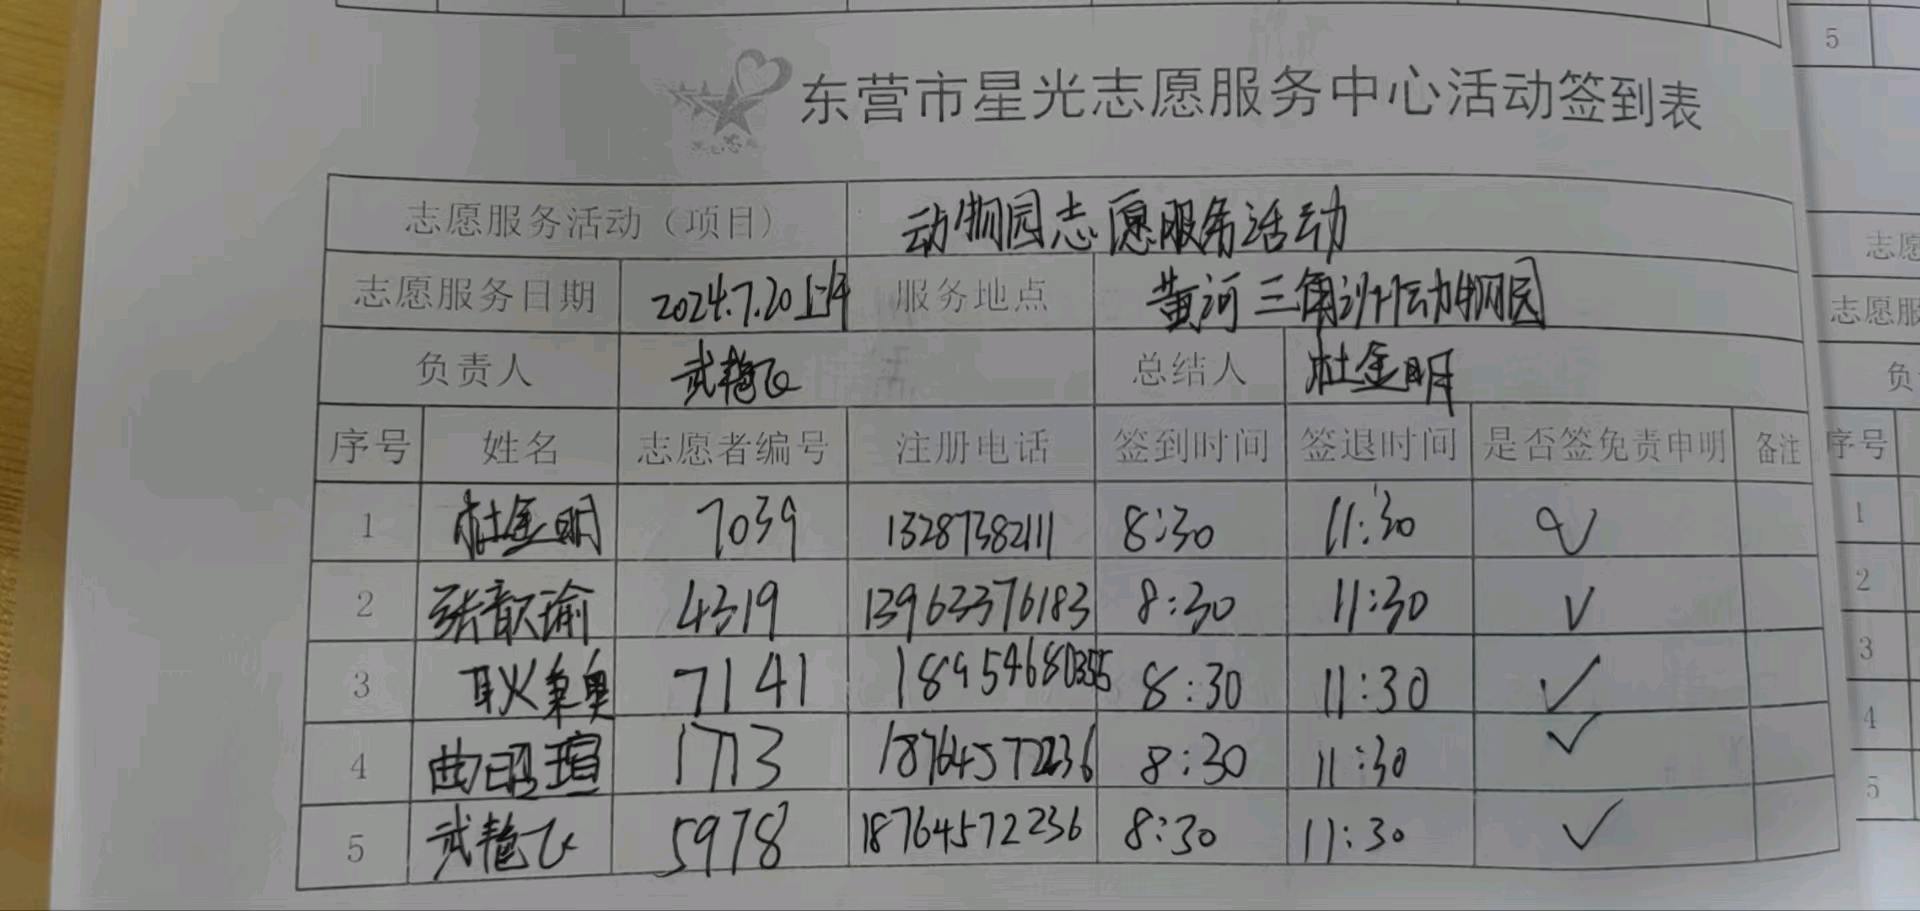 5
东营市星光志愿服务中心活动签到表
志愿服务活动（项目） 动物园志愿服务活动
志愿服务日期 2024.7.20上午 服务地点 黄河三角洲动物园
负责人 武艳飞 总结人 杜金明
序号 姓名 志愿者编号 注册电话 签到时间 签退时间 是否签免责申明 备注
1 杜金明 7039 13287382111 8:30 11:30 √
2 张歆瑜 4319 13963376183 8:30 11:30 √
3 耿 奥 7141 8:30 11:30 √
4 曲昭瑄 1713 18764572236 8:30 11:30 √
5 武艳飞 5978 18764572236 8:30 11:30 √
志愿
志愿服
负
序号
1
2
3
4
5